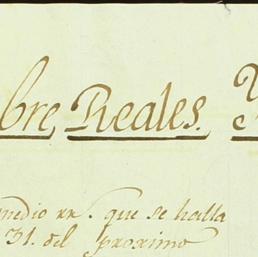 bre, Reales.
medio rr.<sup>s</sup> que se halla
31. del proximo